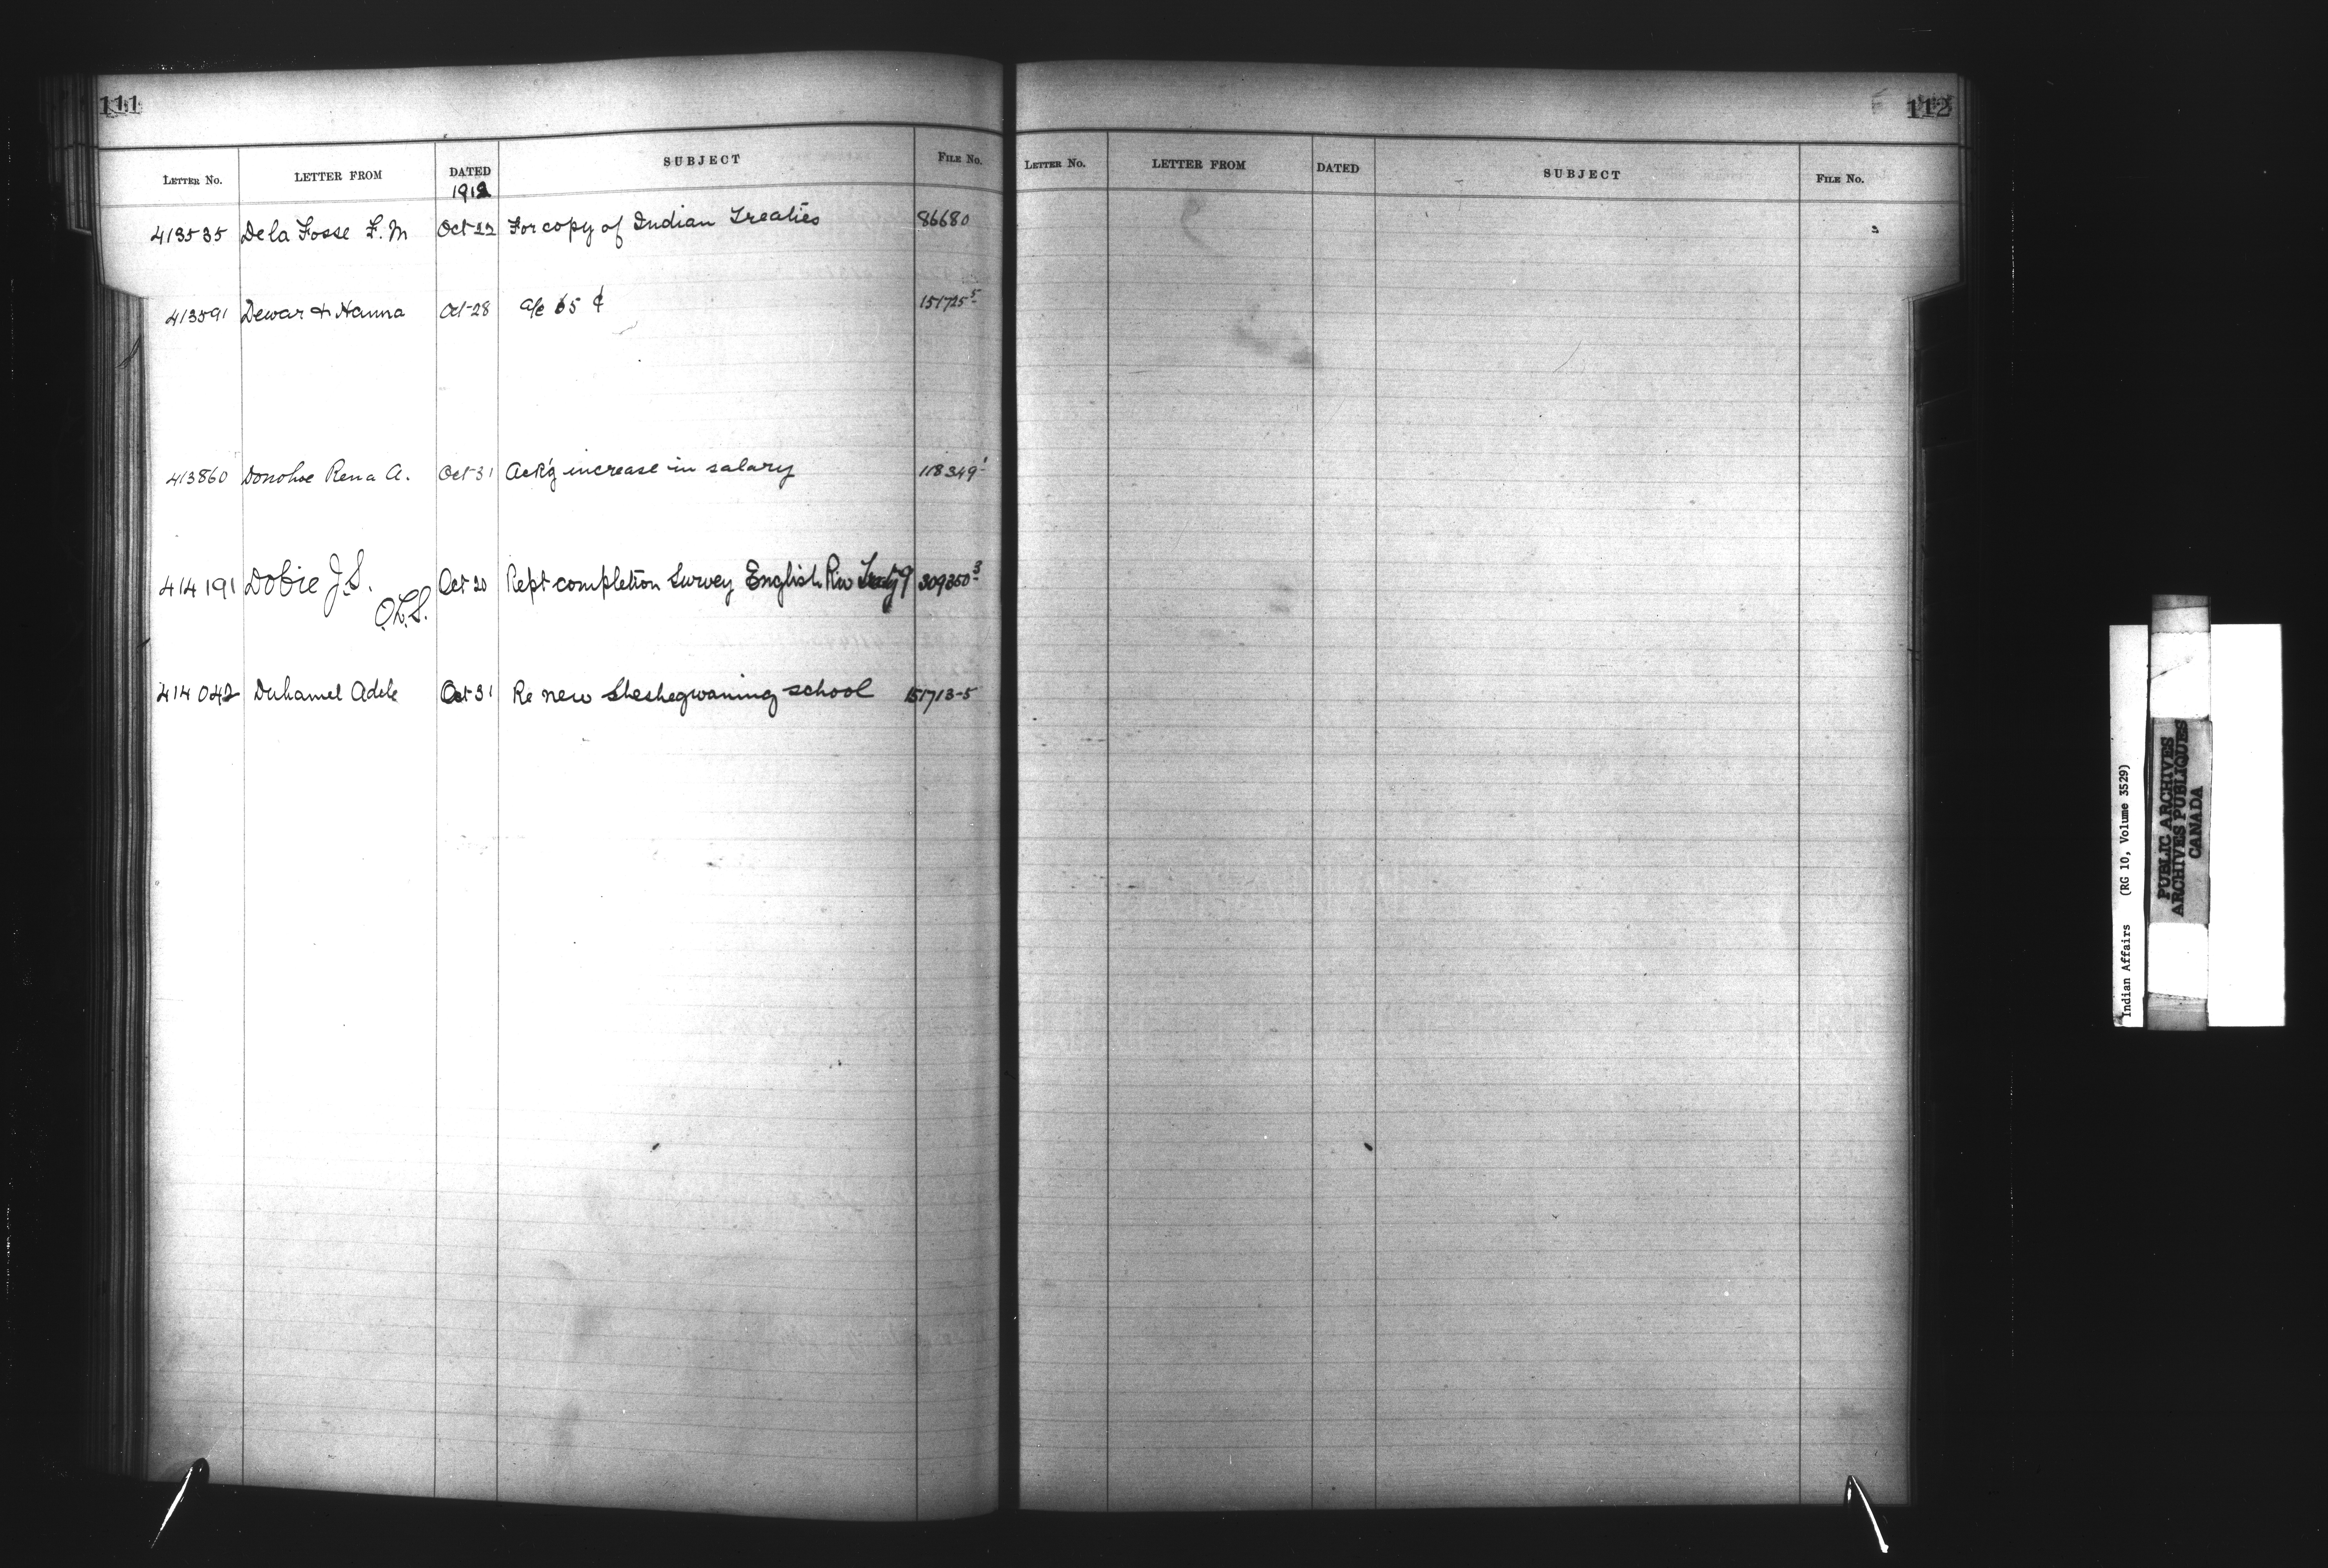 111
LETTER No. LETTER FROM DATED SUBJECT FILE No.
1912
413535 De la Fosse F. M Oct 22 For copy of Indian Treaties 86680
413591 Dewar & Hanna Oct-28 a/c 65 ¢ 151725-5
413860 Donohoe Rena A. Oct 31 Ack'g increase in salary 118349-1
414191 Dobie J. S. Oct 20 Rept completion Survey English Riv Treaty 9 309350-3
O.L.S.
414042 Duhamel Adele Oct 31 Re new Sheshegwaning school 151713-5
112
LETTER No. LETTER FROM DATED SUBJECT FILE No.
Indian Affairs (RG 10, Volume 3529)
PUBLIC ARCHIVES
ARCHIVES PUBLIQUES
CANADA